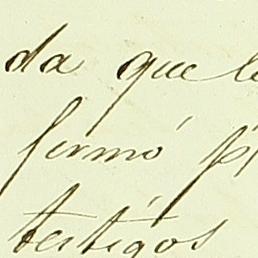 da que
firmó
testigos